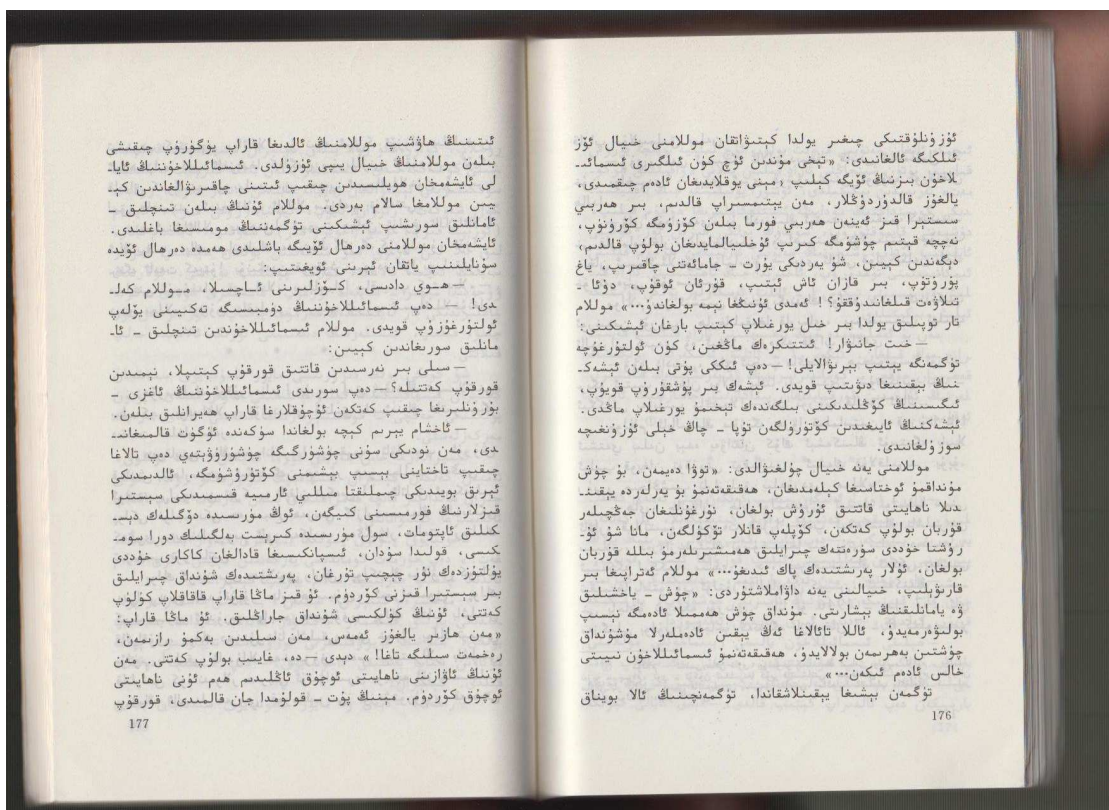 ئۇزۇنلۇقتىكى چىغىر يولدا كېتىۋاتقان موللامنى خىيال ئۆز
ئىلكىگە ئالغانىدى: «تېخى مۇندىن ئۈچ كۈن ئىلگىرى ئىسمائىـ
للاخۇن بىزنىڭ ئۆيگە كېلىپ ‹مېنى يوقلايدىغان ئادەم چىقمىدى،
يالغۇز قالدۇردۇڭلار، مەن يېتىمسىراپ قالدىم، بىر ھەربىي
سىستىرا قىز ئەينەن ھەربىي فورما بىلەن كۆزۈمگە كۆرۈنۈپ،
نەچچە قېتىم چۈشۈمگە كىرىپ ئۇخلىيالمايدىغان بولۇپ قالدىم›
دېگەندىن كېيىن، شۇ يەردىكى يۇرت - جامائەتنى چاقىرىپ، ياغ
پۇرۇتۇپ، بىر قازان ئاش ئېتىپ، قۇرئان ئوقۇپ، دۇئا -
تىلاۋەت قىلغانىدۇققۇ؟! ئەمدى ئۇنىڭغا نېمە بولغاندۇ...» موللام
تار توپىلىق يولدا بىر خىل يورغىلاپ كېتىپ بارغان ئېشىكىنى:
— خىت جانىۋار! ئىتتىكرەك ماڭغىن، كۈن ئولتۇرغۇچە
تۈگمەنگە يېتىپ بېرىۋالايلى! — دەپ ئىككى پۇتى بىلەن ئېشەكـ
نىڭ بېقىنىغا دىۋىتىپ قويدى. ئېشەك بىر پۇشقۇرۇپ قويۇپ،
ئىگىسىنىڭ كۆڭلىدىكىنى بىلگەندەك تېخىمۇ يورغىلاپ ماڭدى.
ئېشەكنىڭ ئايىغىدىن كۆتۈرۈلگەن توپا - چاڭ خېلى ئۇزۇنغىچە
سوزۇلغانىدى.
موللامنى يەنە خىيال چۇلغىۋالدى: «توۋا دەيمەن، بۇ چۈش
مۇنداقمۇ ئوختاسىغا كېلەمدىغان، ھەقىقەتەنمۇ بۇ يەرلەردە يېقىنـ
دىلا ناھايىتى قاتتىق ئۇرۇش بولغان، نۇرغۇنلىغان جەڭچىلەر
قۇربان بولۇپ كەتكەن، كۆپلەپ قانلار تۆكۈلگەن، مانا شۇ ئۇـ
رۇشتا خۇددى سۈرەتتەك چىرايلىق ھەمشىرىلەرمۇ بىللە قۇربان
بولغان، ئۇلار پەرىشتىدەك پاك ئىدىغۇ...» موللام ئەتراپىغا بىر
قارىۋېلىپ، خىيالىنى يەنە داۋاملاشتۇردى: «چۈش - ياخشىلىق
ۋە يامانلىقنىڭ بېشارىتى. مۇنداق چۈش ھەممىلا ئادەمگە نېسىپ
بولىۋەرمەيدۇ، ئاللا تائالاغا ئەڭ يېقىن ئادەملەرلا مۇشۇنداق
چۈشتىن بەھرىمەن بولالايدۇ، ھەقىقەتەنمۇ ئىسمائىللاخۇن نىيىتى
خالىس ئادەم ئىكەن...»
تۈگمەن بېشىغا يېقىنلاشقاندا، تۈگمەنچىنىڭ ئالا بويناق
176
ئىتىنىڭ ھاۋشىپ موللامنىڭ ئالدىغا قاراپ يۈگۈرۈپ چىقىشى
بىلەن موللامنىڭ خىيال يىپى ئۈزۈلدى. ئىسمائىللاخۇننىڭ ئاياـ
لى ئايشەمخان ھويلىسىدىن چىقىپ ئىتىنى چاقىرىۋالغاندىن كېـ
يىن موللامغا سالام بەردى. موللام ئۇنىڭ بىلەن تىنچلىق -
ئامانلىق سورىشىپ ئېشىكىنى تۈگمەننىڭ مومىسىغا باغلىدى.
ئايشەمخان موللامنى دەرھال ئۆيىگە باشلىدى ھەمدە دەرھال ئۆيدە
سۇنايلىنىپ ياتقان ئېرىنى ئويغىتىپ:
— ھوي دادىسى، كۆزلىرىنى ئاچسىلا، موللام كەلـ
دى! — دەپ ئىسمائىللاخۇننىڭ دۈمبىسىگە تەكىيىنى يۆلەپ
ئولتۇرغۇزۇپ قويدى. موللام ئىسمائىللاخۇندىن تىنچلىق - ئاـ
مانلىق سورىغاندىن كېيىن:
— سىلى بىر نەرسىدىن قاتتىق قورقۇپ كېتىپلا، نېمىدىن
قورقۇپ كەتتىلە؟ — دەپ سورىدى ئىسمائىللاخۇننىڭ ئاغزى -
بۇرۇنلىرىغا چىقىپ كەتكەن ئۇچۇقلارغا قاراپ ھەيرانلىق بىلەن.
— ئاخشام يېرىم كېچە بولغاندا سۆكەندە ئۇگۇت قالمىغانـ
دى، مەن نودىكى سۇنى چۈشۈرگىگە چۈشۈرۈۋېتەي دەپ تالاغا
چىقىپ تاختاينى بېسىپ بېشىمنى كۆتۈرۈشۈمگە، ئالدىمدىكى
ئېرىق بويىدىكى چىملىقتا مىللىي ئارمىيە قىسمىدىكى سېستىرا
قىزلارنىڭ فورمىسىنى كىيگەن، ئوڭ مۈرىسىدە دۈگىلەك دىسـ
كىلىق ئاپتومات، سول مۈرىسىدە كىرېست بەلگىلىك دورا سومـ
كىسى، قولىدا سۇدان، ئىسپانكىسىغا قادالغان كاكارى خۇددى
يۇلتۇزدەك نۇر چېچىپ تۇرغان، پەرىشتىدەك شۇنداق چىرايلىق
بىر سېستىرا قىزنى كۆردۈم. ئۇ قىز ماڭا قاراپ قاقاقلاپ كۈلۈپ
كەتتى، ئۇنىڭ كۈلكىسى شۇنداق جاراڭلىق. ئۇ ماڭا قاراپ:
«مەن ھازىر يالغۇز ئەمەس، مەن سىلىدىن بەكمۇ رازىمەن،
رەخمەت سىلىگە تاغا!» دېدى — دە، غايىب بولۇپ كەتتى. مەن
ئۇنىڭ ئاۋازىنى ناھايىتى ئوچۇق ئاڭلىدىم ھەم ئۇنى ناھايىتى
ئوچۇق كۆردۈم. مېنىڭ پۇت - قولۇمدا جان قالمىدى، قورقۇپ
177